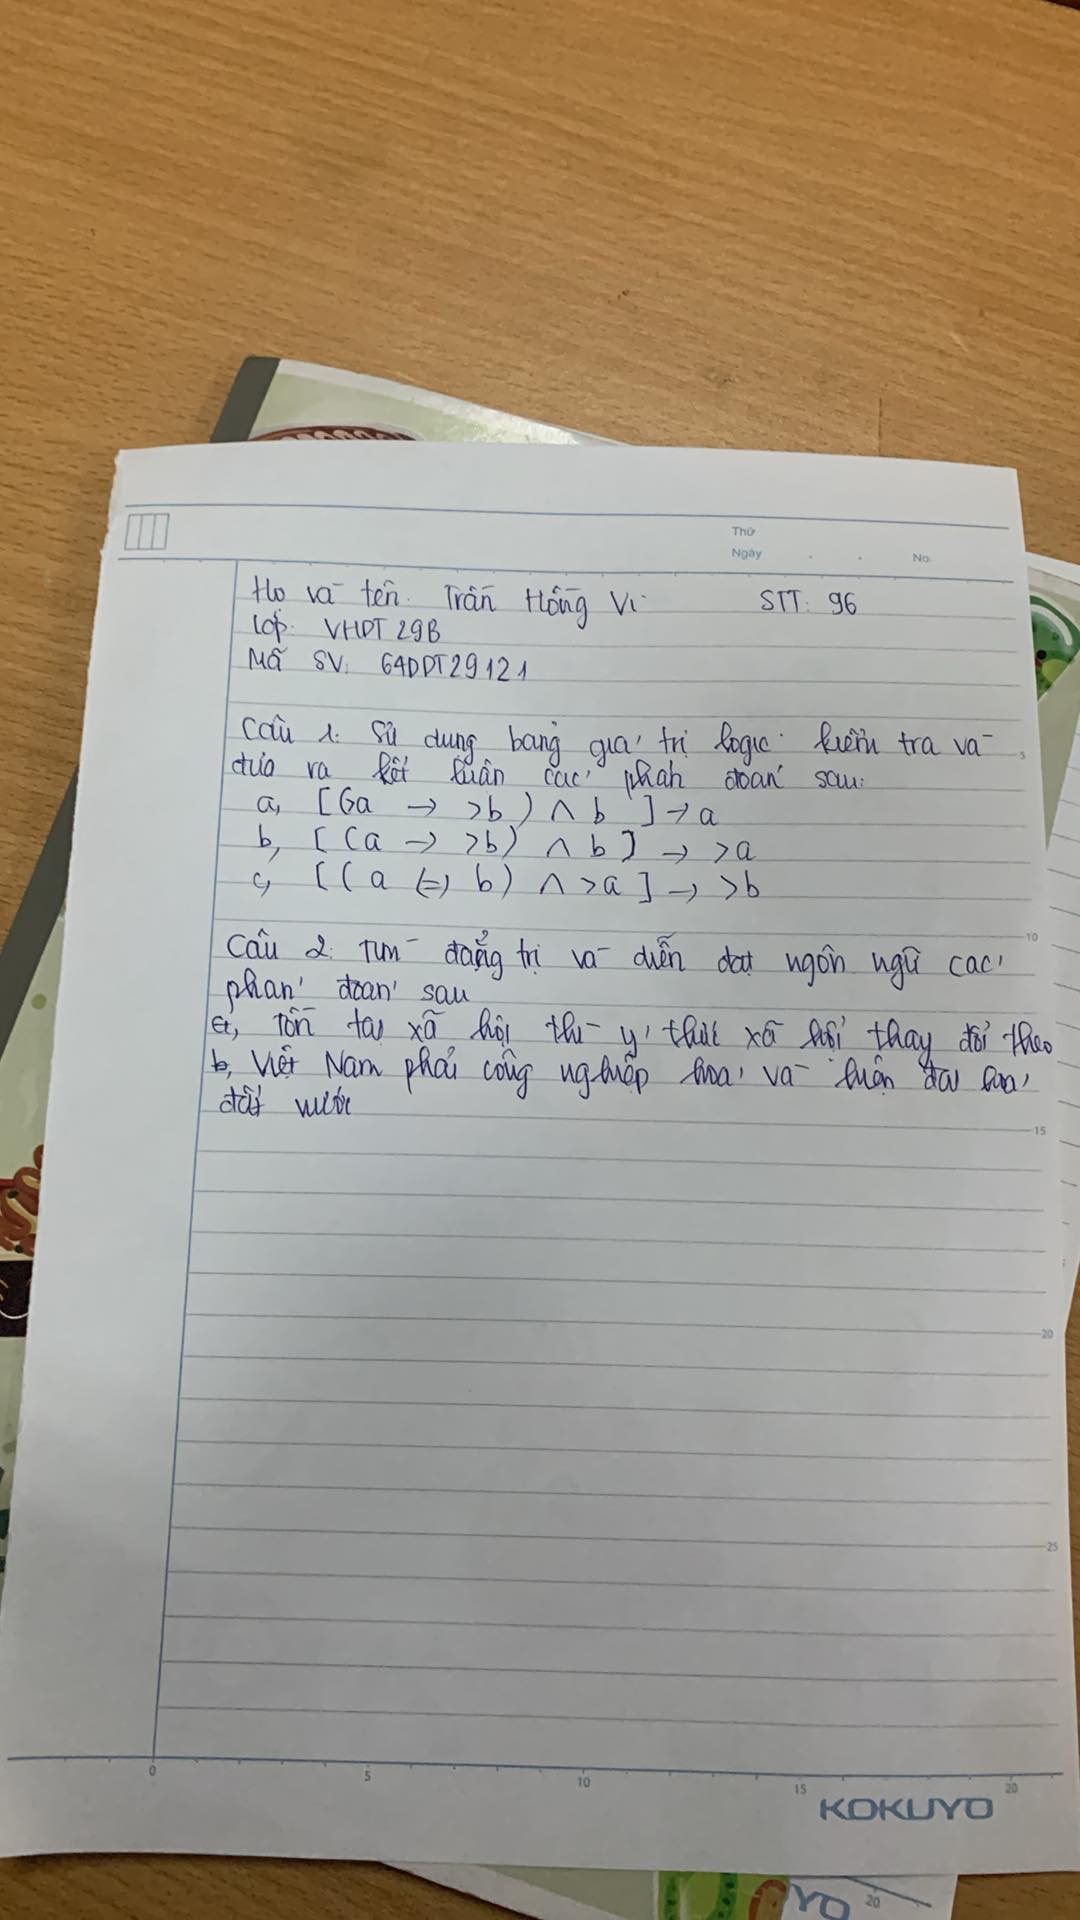 Thứ
Ngày . . No.
Họ và tên: Trần Hồng Vi STT: 96
Lớp: VHDT 29B
Mã SV: 64DDT29121
Câu 1: Sử dụng bảng giá trị logic kiểm tra và
đưa ra kết luận các phán đoán sau:
a, [(>a → >b) ∧ b ] → a
b, [ (a → >b) ∧ b ] → >a
c, [( a <=> b) ∧ >a ] → >b
Câu 2: Tìm đẳng trị và diễn đạt ngôn ngữ các
phán đoán sau
a, Tồn tại xã hội thì ý thức xã hội thay đổi theo
b, Việt Nam phải công nghiệp hoá và hiện đại hoá
đất nước
5
10
15
20
25
0 5 10 15 20
KOKUYO
YO 20